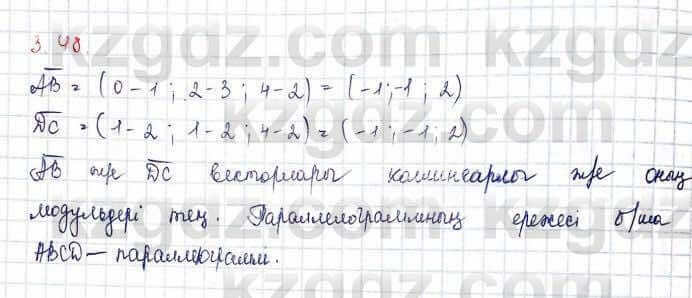 3.48.
AB = (0-1; 2-3; 4-2) = (-1; -1; 2)
DC = (1-2; 1-2; 4-2) = (-1; -1; 2)
AB және DC векторлары коллинеарлы және оның
модульдері тең. Параллелограммның ережесі б/ша
ABCD — параллелограмм.
kzgdz.com